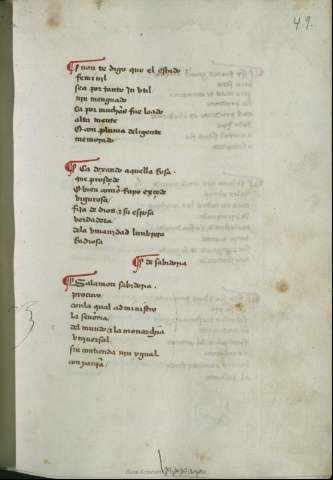 49.
E non te digo que el estado
femi nil
sea por tanto In vtil
nin menguado
Ca por muchos fue loado
alta mente
E con pluma deligente
memorado
Ca dexando aquella Rosa
que proçede
E bien como Rayo exçede
vigurosa
fija de dios e su esposa
verdadera
dela vmanidad lunbrera
Radiosa
de sabieza
Salamon sabieza
procuro
con la qual administro
la señoria
del mundo e la monarchia
vniuersal
sin contienda nin ygual
conpañia